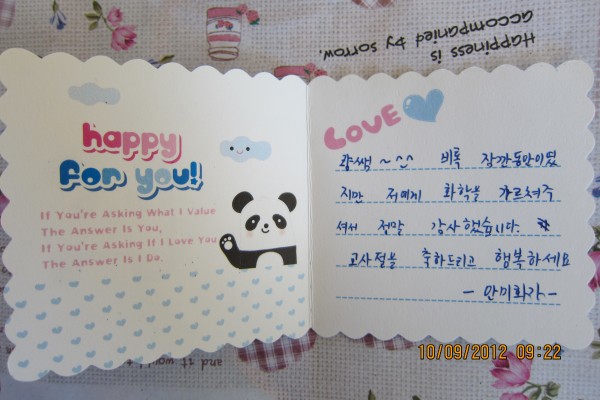 Happiness is
accompanied by sorrow.
happy
for you!!
If You're Asking What I Value
The Answer Is You,
If You're Asking If I Love You
The Answer Is I Do.
LOVE
쌤 ~ ^^ 비록 잠깐동안이였
지만 저에게 화학을 가르쳐주
셔서 정말 감사했습니다.
교사절을 축하드리고 행복하세요
and it would
10/09/2012 09:22